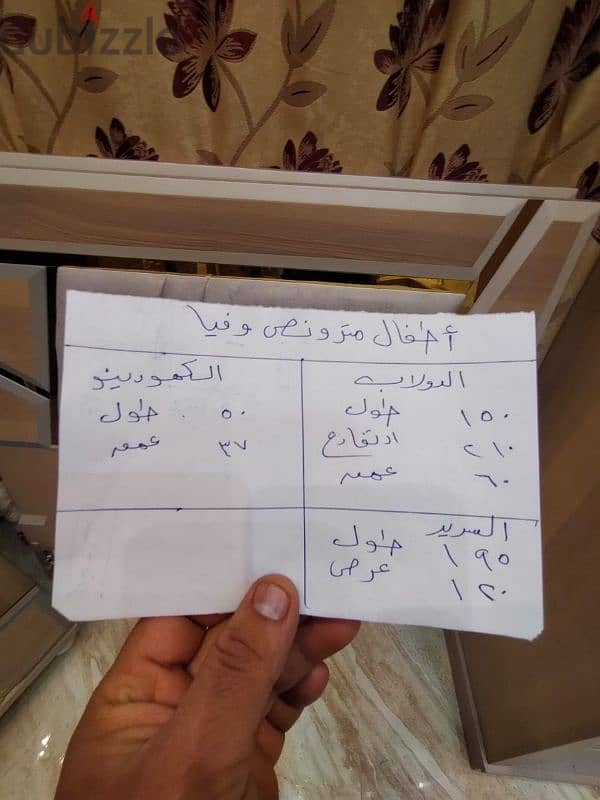 dubizzle
أطفال مترونص وفيا
الدولاب
١٥٠ طول
٢١٠ ارتفاع
٦٠ عمق
الكمودينو
٥٠ طول
٣٧ عمق
السرير
١٩٥ طول
١٢٠ عرض